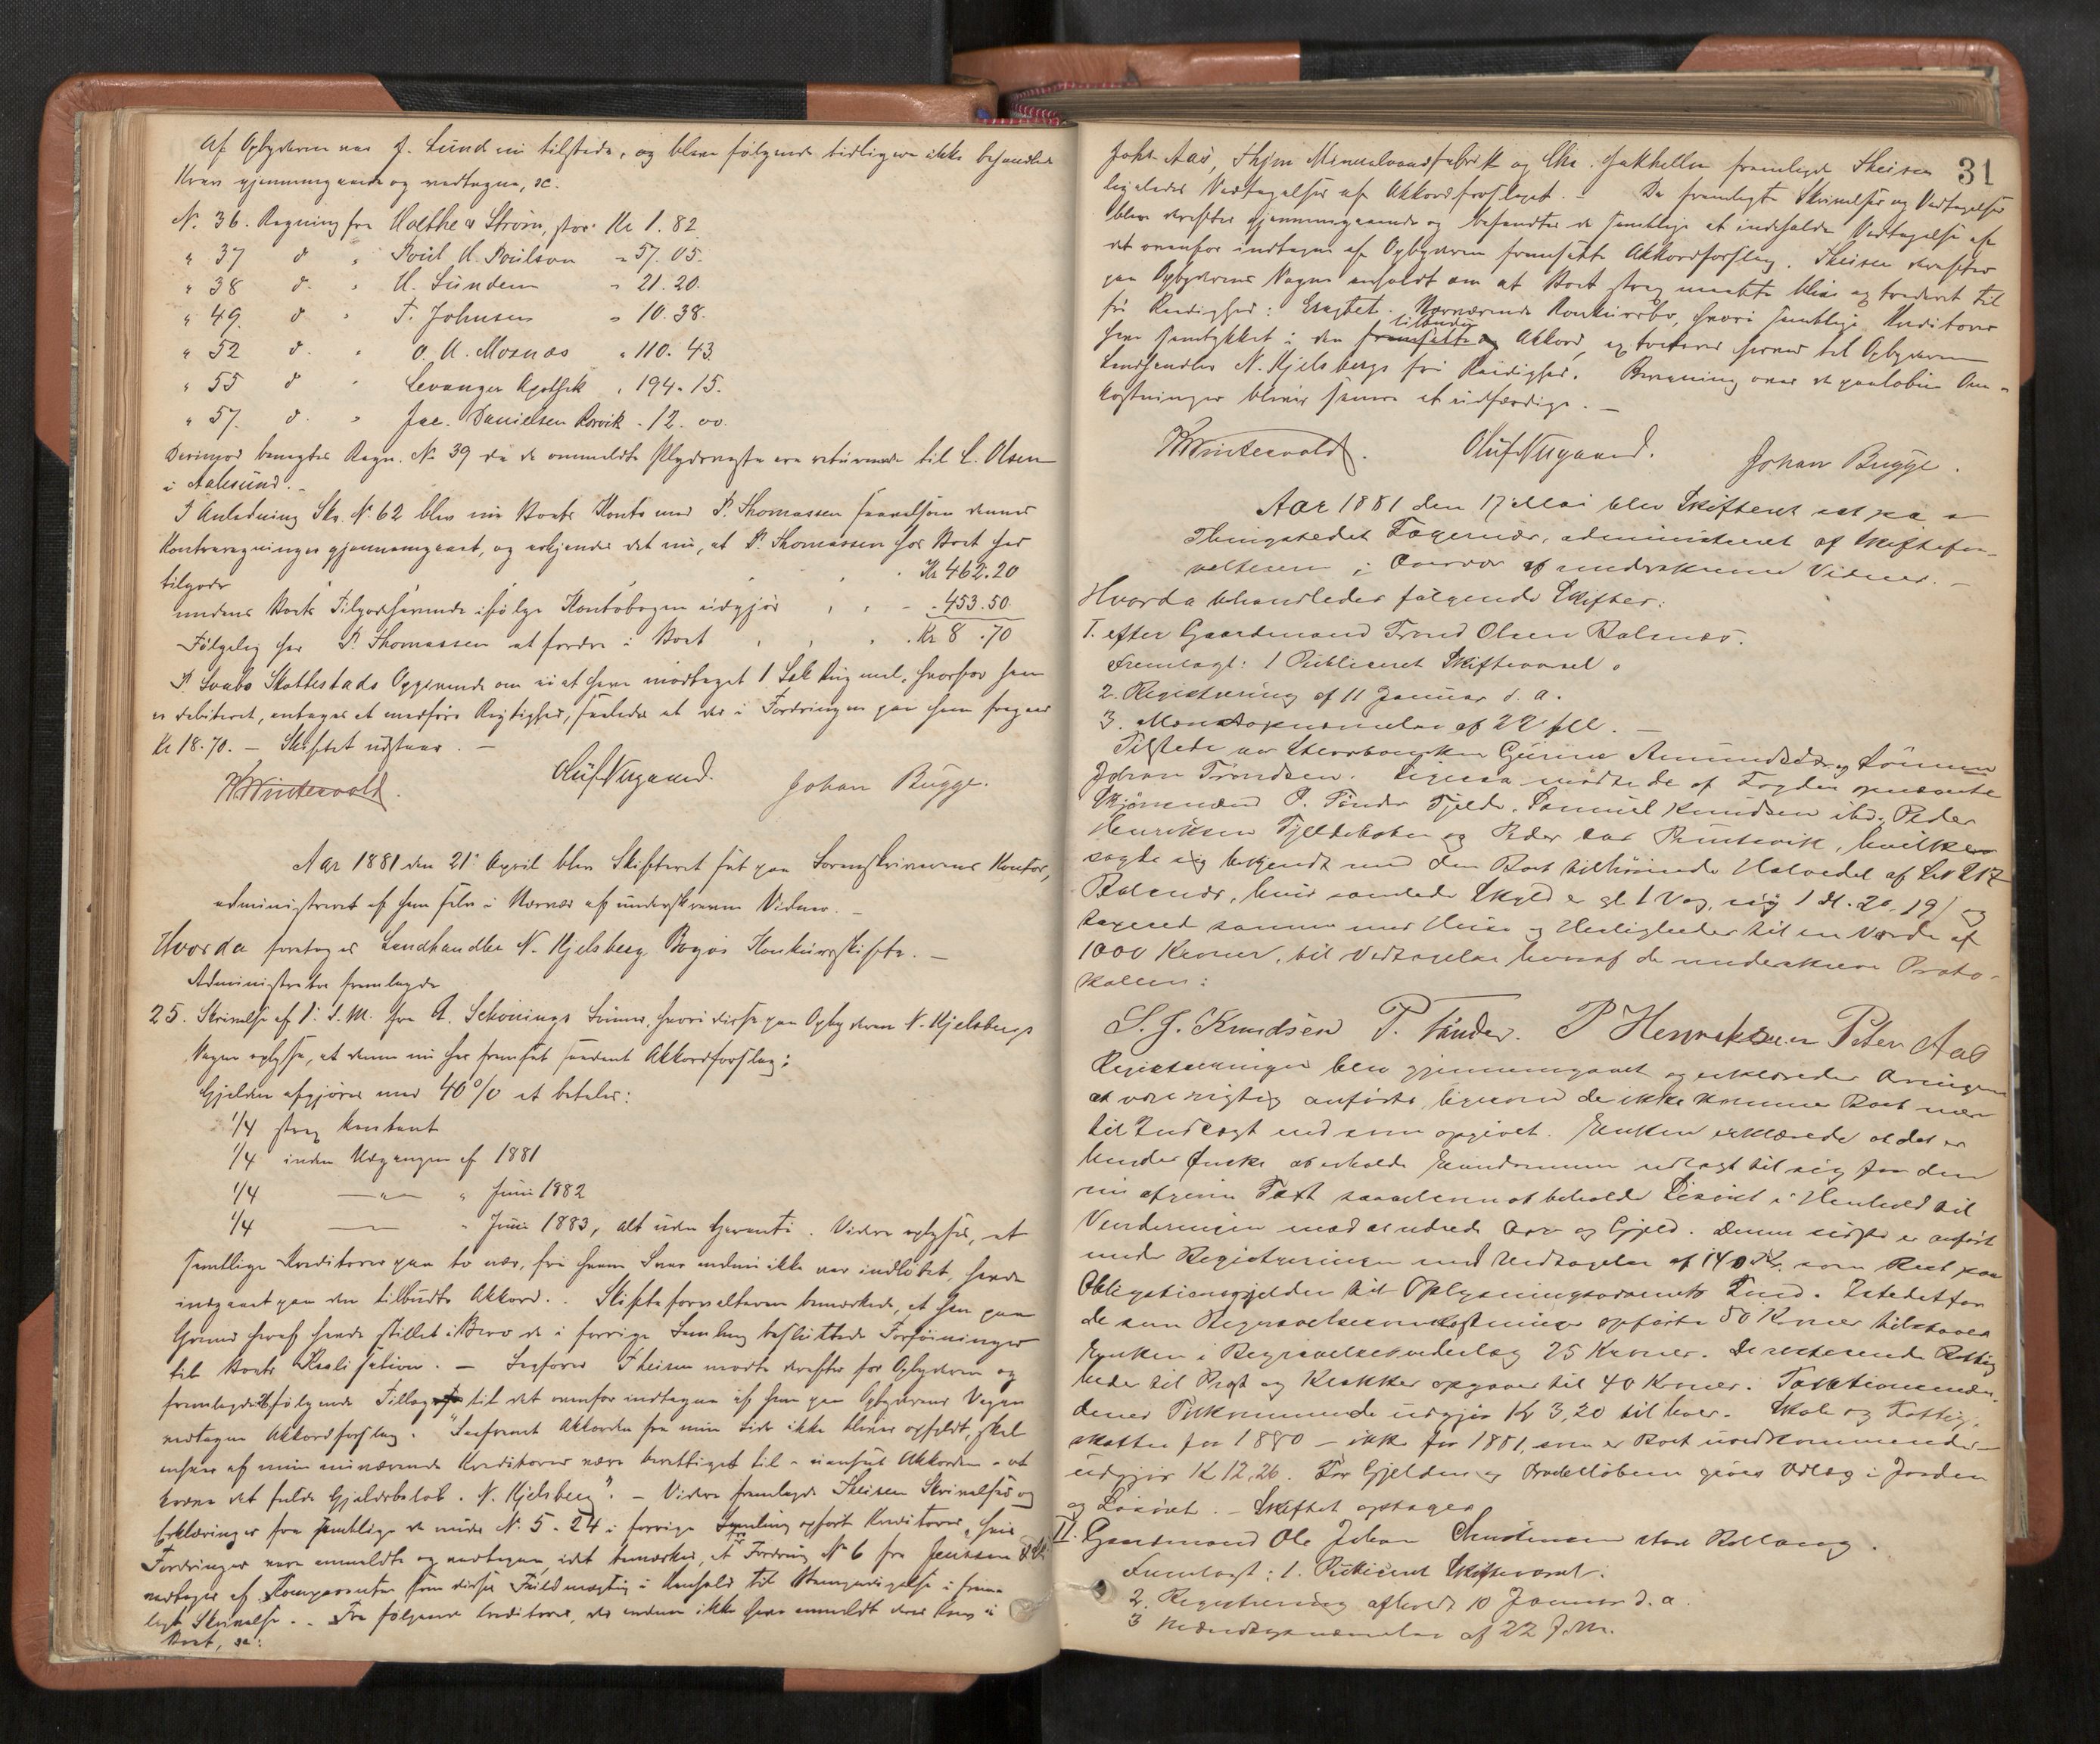 Af Opbyderen var J. Lund en tilstede, og bleve følgende tidligere ikke behandlede
Krav gjennemgaaede og vedtagne, sc.
No. 36. Regning fra Holthe & Strøm, stor Kr 1.82.
" 37 do " Poul H. Poulson " 57.05.
" 38 do. " U. Lundem " 21.20.
" 49. do " F. Johnsen " 10.38.
" 52 do. " O. A. Mosnæs " 110.43.
" 55 do " Levanger Apothek " 194.15.
" 57. do. " Jac. Danielsen Rørvik - 12.00.
Derimod benegtes Regn. No 39 da de ommeldte ere returnerede til L. Olsen
i Aalesund. -
I Anledning Skr. No 62 blev nu Boets Konto med P. Thomassen saavelsom dennes
Kontraregninger gjennemgaaet, og erkjendes det nu, at P. Thomassen hos Boet har
tilgode " " " Kr 462.20
medens Boets Tilgodehavende ifølge Kontobogen udgjør " " - - 453.50.
Følgelig har P. Thomassen at fordre i Boet " " " Kr 8.70
P. Skattestads Opgivende om ei at have modtaget 1 Sæk Rugmel, hvorfor han
er debiteret, antages at medføre Rigtighed, saaledes at der i Fordringen paa ham fragaar
Kr 18.70. — Skiftet udstaar. —
Olüf Nygaard. Johan Bugge.
Aar 1881 den 21de April blev Skifteret sat paa Sorenskriverens Kontor,
administreret af ham selv i Nærvær af underskrevne Vidner. -
Hvorda foretoges Landhandler N. Hjelsberg Konkursskifte. —
Administrator fremlagde
25. Skrivelse af d. M. fra A. Schønings Sønner, hvori disse paa Opbyderen N. Hjelsbergs
Vegne oplyse, at denne nu har fremsat saadant Akkordforslag:
Gjelden afgjøres med 40% at betales:
1/4 strax kontant
1/4 inden Udgangen af 1881
1/4 —"— " Juni 1882
1/4 —"— " Juni 1883, alt uden Garanti. Videre oplyses, at
samtlige Kreditorer paa to nær, fra hvem Svar endnu ikke var indløbet, havde
indgaaet paa den tilbudte Akkord. Skifteforvalteren bemærkede, at han paa
Grund heraf havde stillet i Bero de i forrige Samling besluttede Forføininger
til Boets Realisation. — Sagfører Theisen mødte derefter for Opbyderen og
fremlagde 26 følgende Tillæg til det ovenfor indtagne af ham paa Opbyderens Vegne
vedtagne Akkordforslag. "Saafremt Akkorden fra min Side ikke bliver opfyldt, skal
enhver af mine nuværende Kreditorer være berettiget til - uanseet Akkorden - at
kræve det fulde Gjeldsbeløb. N. Hjelsberg". — Videre fremlagde Theisen Skrivelser og
Erklæringer fra samtlige de under No. 5 - 24 i forrige Samling opførte Kreditorer, hvis
Fordringer vare anmeldte og vedtagne, idet bemærkes, at Fordring No 6 fra Jenssen & Co.
vedtages af Komparenten som disses Fuldmægtig i Henhold til Bemyndigelse i frem-
lagt Skrivelse. - Fra følgende Creditorer, der endnu ikke have anmeldt deres Krav i
Boet, sc:
31
Johs Aas, Thjem Mineralvandsfabrik og Chr. Jakhelln fremlagde Theisen
ligeledes Vedtagelser af Akkordforslaget. - De fremlagte Skrivelser og Vedtagelser
bleve derefter gjennemgaaede og befandtes de samtlige at indeholde Vedtagelse af
det ovenfor indtagne af Opbyderen fremsatte Akkordforslag. Theisen derefter
paa Opbyderens Vegne anholdt om at Boet strax maatte blive extraderet til
fri Raadighed: Eragtet. Nærværende Konkursbo, hvori samtlige Kreditorer
tilbudte
have samtykket i den fremsatte Akkord, extraderes herved til Opbyderen
Landhandler N. Hjelsbergs fri Raadighed. Beregning over de paaløbne Om-
kostninger bliver senere at udfærdige. —
Olüf Nygaard. Johan Bugge.
Aar 1881 den 17 Mai blev Skifteret sat paa
Thingstedet Fagernæs, administreret af Skiftefor-
valteren i Overvær af underskrevne Vidner. —
Hvorda behandledes følgende Skifter:
I. efter Gaardmand Trond Olsen Balsnæs.
Fremlagt: 1 Publiceret Skiftevarsel.
2. Registrering af 11 Januar d. a.
3. Mændsopnævnelse af 22 f.M. —
Tilstede var Stervboenken Gurine Amundsdr og Sønnen
Johan Tröndsen. Ligesaa mødte de af Fogden opnævnte
Skjönsmænd P. Tönder Fjelde, Samuel Knudsen ibd, Peder
Henriksen Fjeldebotn og Peder Aas , hvilke
sagde sig bekjendt med den Boet tilhørende Halvdel af LN 217
Balsnæs, hvis samlede Skyld er gl. 1 Vog, ny 1 dl. 2 o. 19 s og
taxered samme med Huse og Herligheder til en Værdi af
1000 Kroner, til Vedtagelse heraf de underskrive Proto-
kollen:
S. J. Knudsen P. Tönder. P Henreksen Peter Aas
Registreringen blev gjennemgaaet og erkleredes Arvingerne
at være rigtig anførte, ligesom de ikke komme Boet mere
til Indtægt end som opgivet. Enken erklærede at det er
hendes Ønske at erholde Eiendommen udlagt til sig for den
nu afgivne Taxt saavelsom at beholde Løsøret i Henhold til
Vurderingen mod at udrede Arv og Gjeld. Denne sidste er anført
under Registreringen med Undtagelse af 140 Kr. som Rest paa
Obligationsgjelden til Oplysningsvæsenets Fond. Istedetfor
de som Begravelsesomkostninger opførte 50 Kroner tilstaaes
Enken i Begravelsesvederlag 25 Kroner. De resterende Rettig-
heder til Prest og Klokker opgaaer til 40 Kroner. Taxtionsmæn-
denes Tilkommende udgjør Kr 3,20 til hver. Skole og Fattig-
skatter for 1880 - ikke for 1881, som er Boet uvedkommende -
udgjør Kr. 12,26. For Gjelden og Arvebeløbene gives Udlæg i Jorden
og Løsøret. — Skiftet optages
II. Gaardmand Ole Johan Christensen store Balleng.
Fremlagt: 1. Publiceret Skiftevarsel.
2. Registrering afholdt 10 Januar d. a.
3 Mændsopnævnelse af 22 f.M.